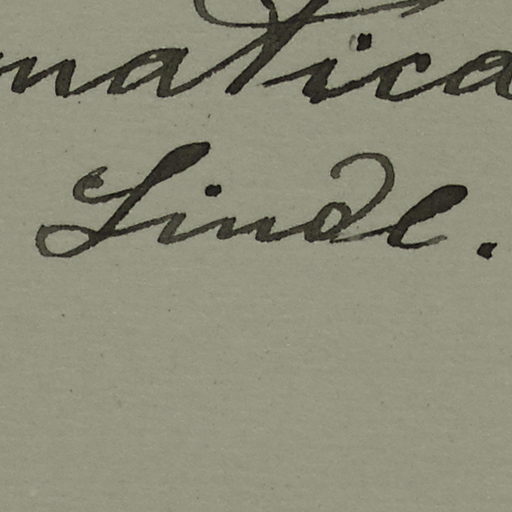 matica
Lindl.